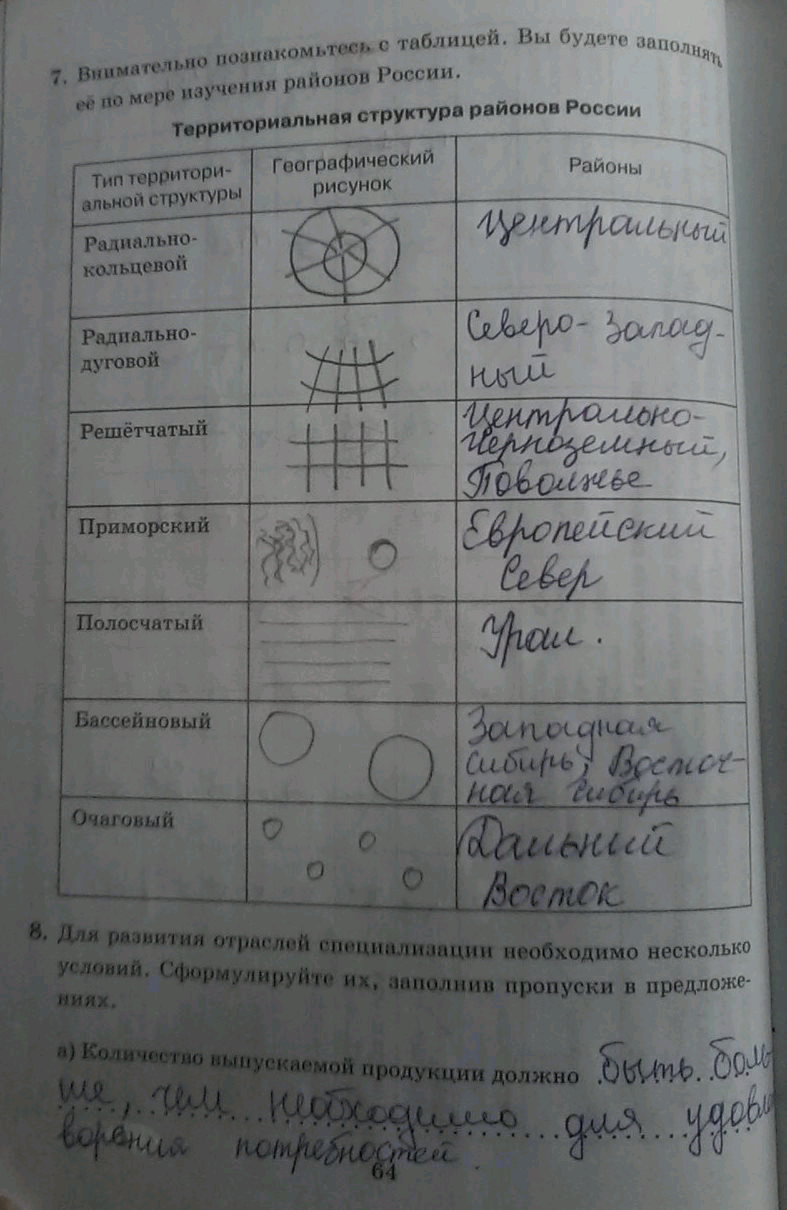 7. Внимательно познакомьтесь с таблицей. Вы будете заполнять
её по мере изучения районов России.
Территориальная структура районов России
Тип территори-
альной структуры
Географический
рисунок
Районы
Радиально-
кольцевой
Центральный
Радиально-
дуговой
Северо-Запад-
ный
Решётчатый
Центрально-
Чернозёмный,
Поволжье
Приморский
Европейский
Север
Полосчатый
Урал.
Бассейновый
Западная
Сибирь, Восточ-
ная Сибирь
Очаговый
Дальний
Восток
8. Для развития отраслей специализации необходимо несколько
условий. Сформулируйте их, заполнив пропуски в предложе-
ниях.
а) Количество выпускаемой продукции должно быть боль
ше, чем необходимо для удовле
ворения потребностей.
64